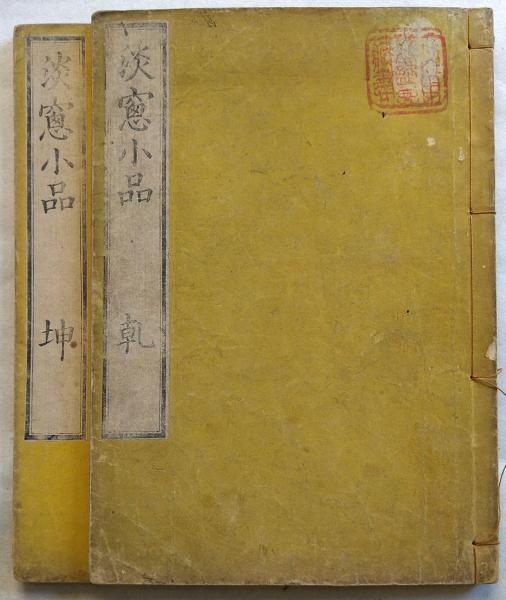 淡窓小品 乾
淡窓小品 坤